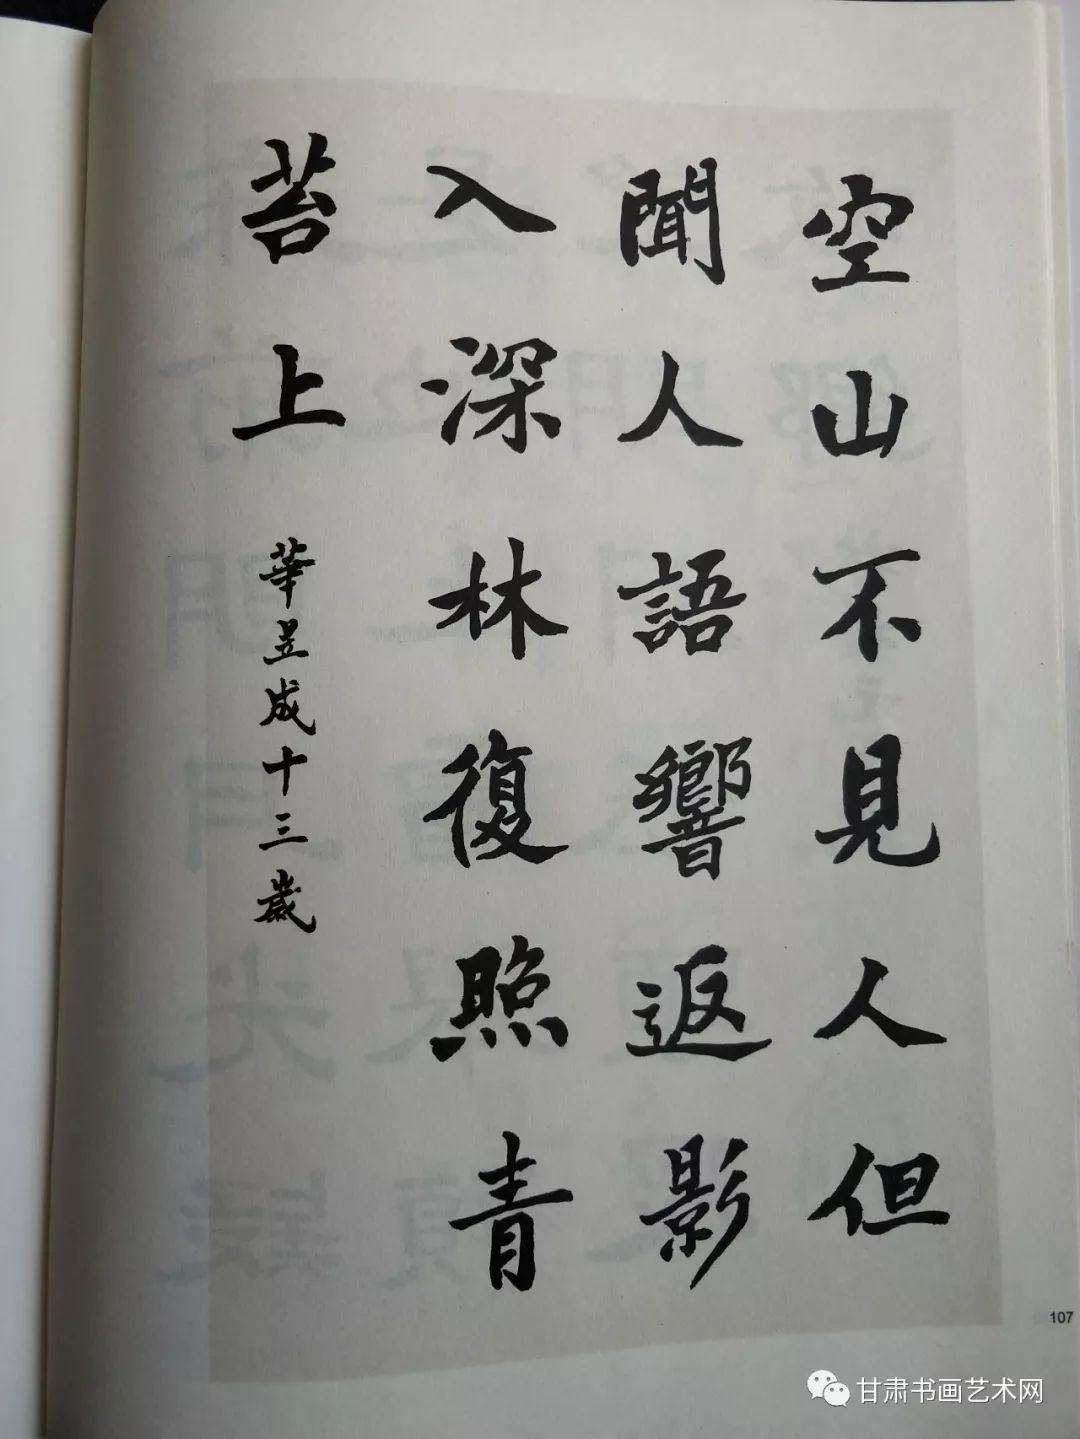 空山不見人但
聞人語響返影
入深林復照青
苔上
華昱成十三歲
107
甘肃书画艺术网